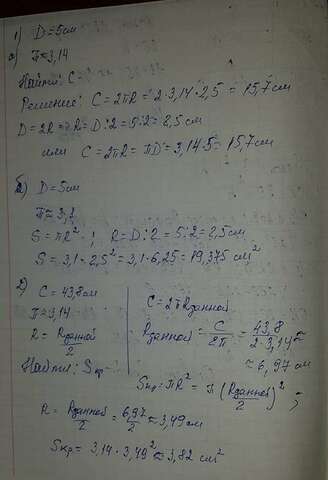 1) D = 5см
а) π ≈ 3,14
Найти: C = ?
Решение: C = 2πR = 2·3,14·2,5 = 15,7см
D = 2R => R = D:2 = 5:2 = 2,5см
или C = 2πR = πD = 3,14·5 = 15,7см
б) D = 5см
π ≈ 3,1
S = πR²; R = D:2 = 5:2 = 2,5см
S = 3,1·2,5² = 3,1·6,25 = 19,375 см²
2) C = 43,8см
π ≈ 3,14
R = Rданной/2
Найти: Sкр
C = 2πRданной
Rданной = C/2π = 43,8/2·3,14 ≈
≈ 6,97 см
Sкр = πR² = π(Rданной/2)²;
R = Rданной/2 = 6,97/2 ≈ 3,49см
Sкр = 3,14·3,49² ≈ 3,82 см²